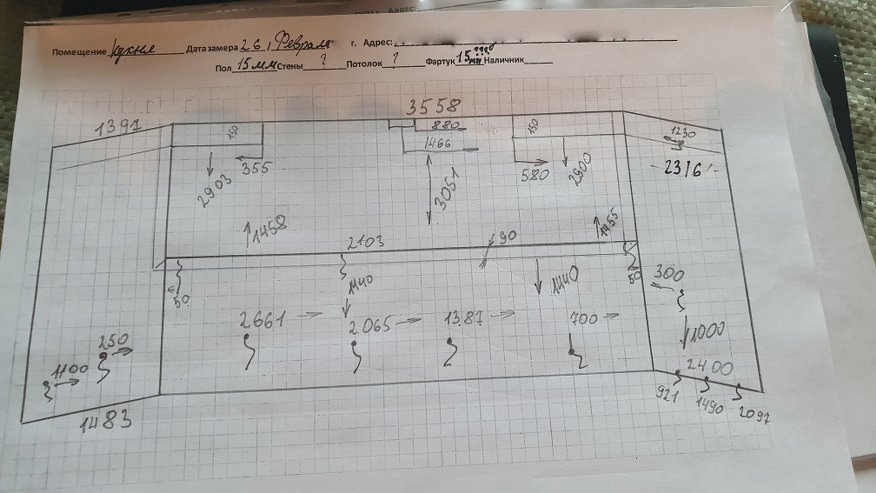 Помещение Кухня Дата замера 26, Феврал г. Адрес:
Пол 15мм Стены ? Потолок ? Фартук 15мм ??? Наличник
3558
1397
150
880
150
1230
1466
355
580
2316
2903
3051
2900
1458
1455
2103
90
50
1440
1440
50
300
2661
2065
1387
700
1000
250
1100
2400
1483
921
1490
2097